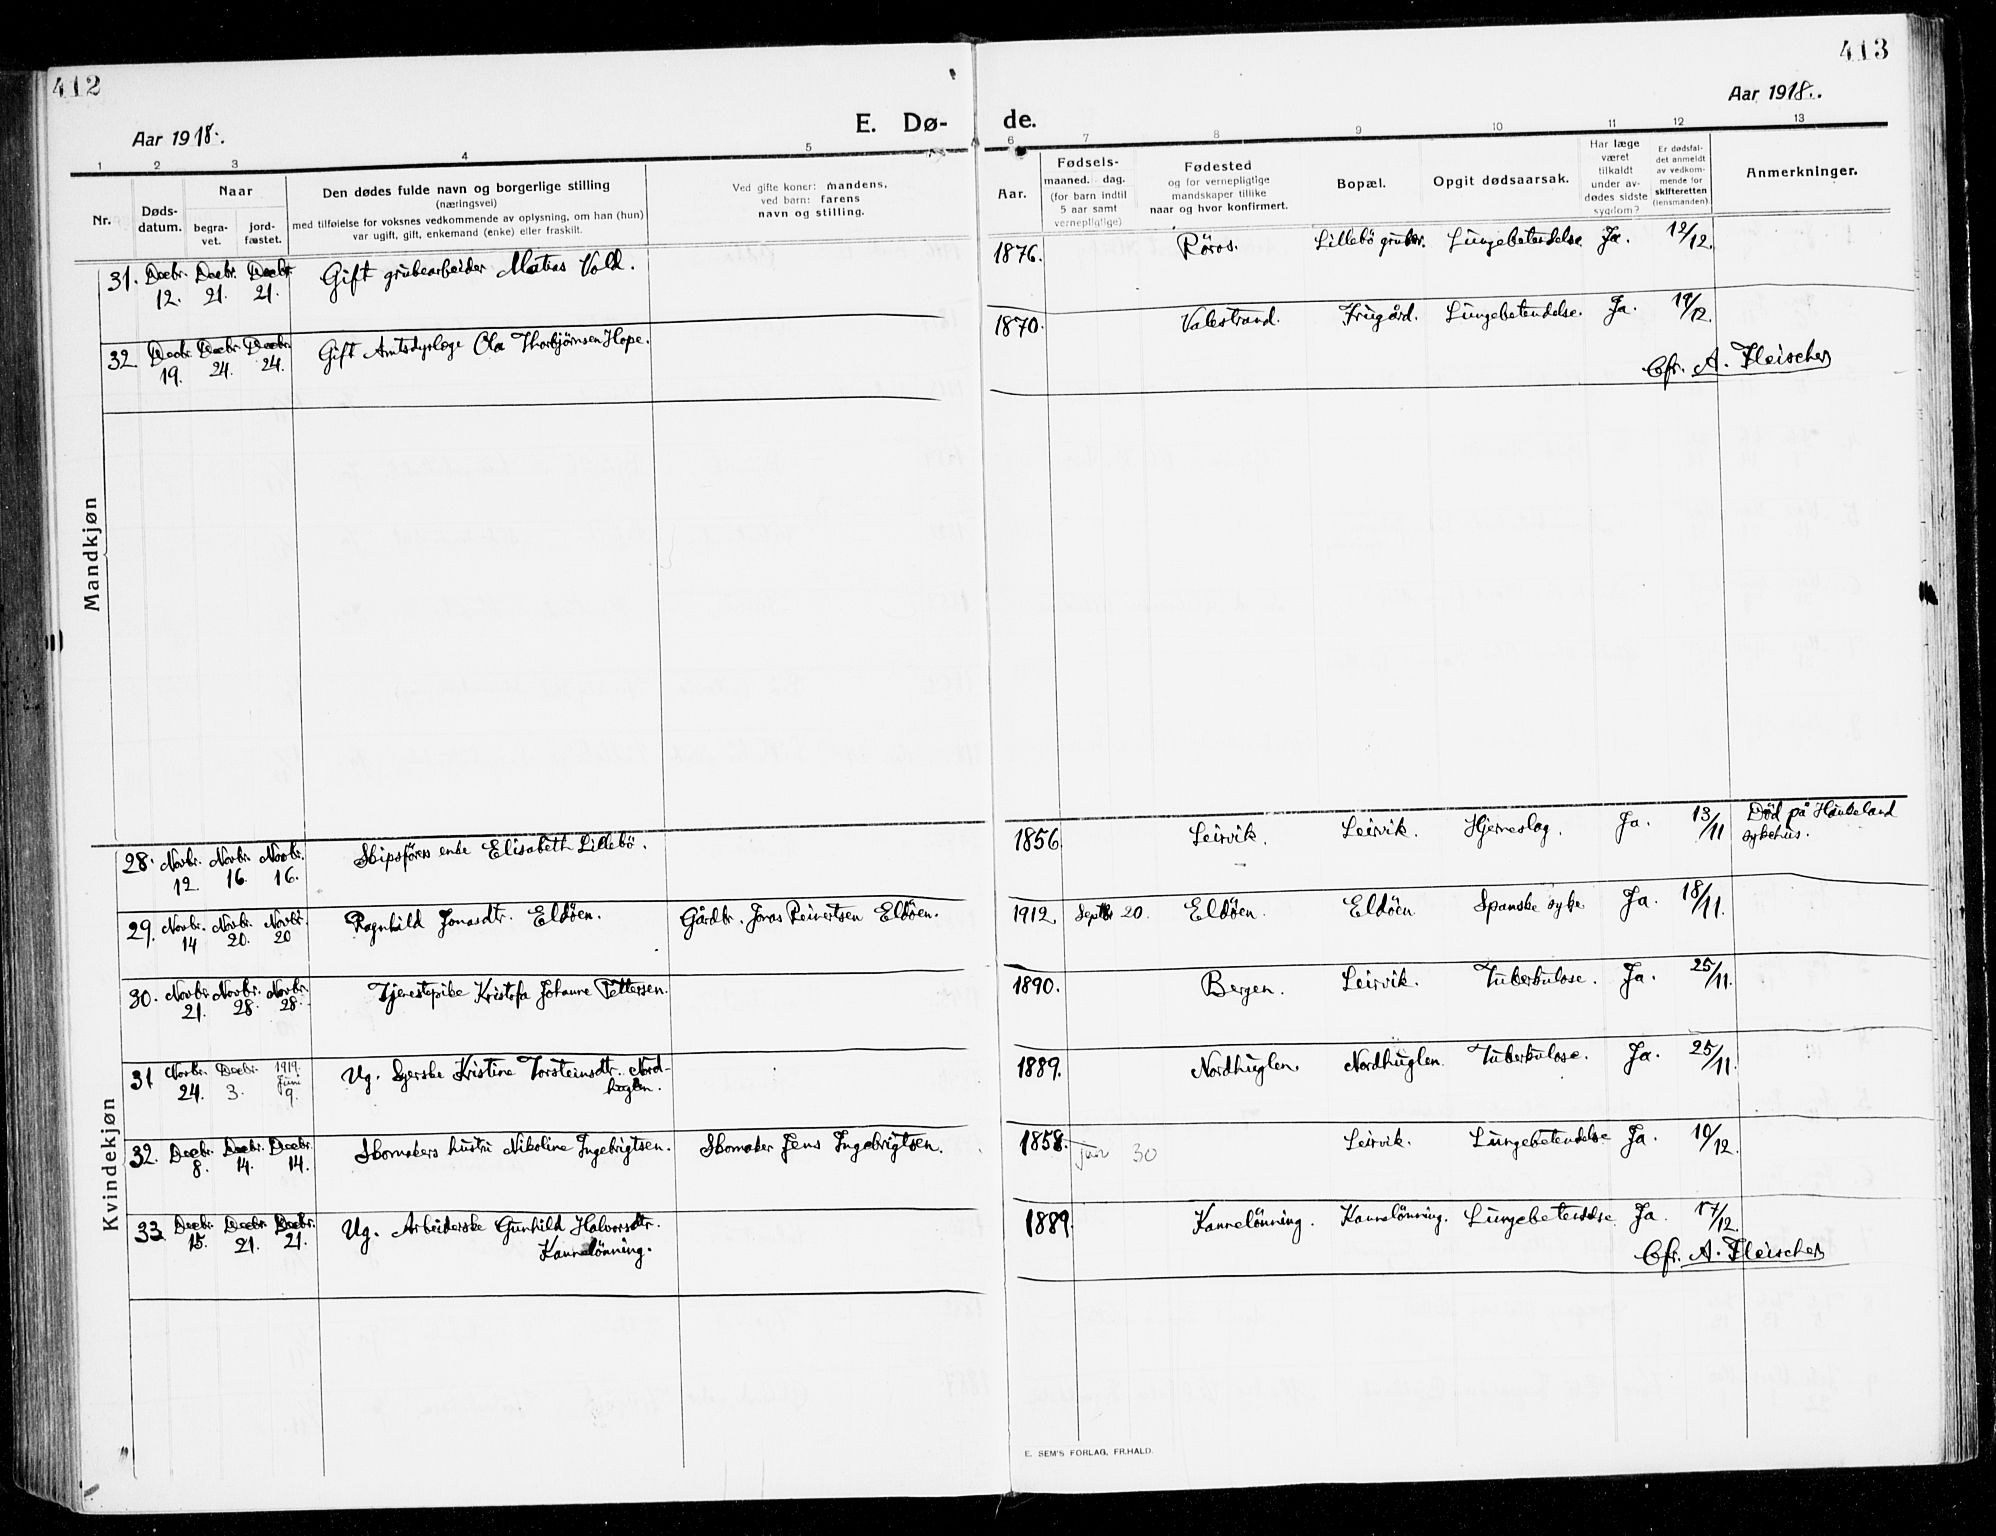 412
413
Aar 1918.
Aar 1918.
E. Dø- de.
1 2 3 4 5 6 7 8 9 10 11 12 13
Nr.
Døds-
datum.
Naar
begra-
vet.
jord-
fæstet.
Den dødes fulde navn og borgerlige stilling
(næringsvei)
med tilføielse for voksnes vedkommende av oplysning, om han (hun)
var ugift, gift, enkemand (enke) eller fraskilt.
Ved gifte koner: mandens,
ved barn: farens
navn og stilling.
Aar.
Fødsels-
maaned. dag.
(for barn indtil
5 aar samt
vernepligtige)
Fødested
og for vernepligtige
mandskaper tillike
naar og hvor konfirmert.
Bopæl.
Opgit dødsaarsak.
Har læge
været
tilkaldt
under av-
dødes sidste
sygdom?
Er dødsfal-
det anmeldt
av vedkom-
mende for
skifteretten
(lensmanden).
Anmerkninger.
Mandkjøn
31. Decbr. 12. Decbr. 21. Decbr. 21. Gift grubearbeider Matias Vold. 1876. Röros. Lillebö gruber. Lungebetendelse Ja. 12/12.
32. Decbr. 19. Decbr. 24. Decbr. 24. Gift Amtsdyrlæge Ola Thorbjørnsen Hope. 1870. Valestrand. Frugård. Lungebetendelse. Ja. 19/12.
Cfr. A. Fleischer
Kvindekjøn
28. Novbr. 12. Novbr. 16. Novbr. 16. Skipsförers enke Elisabeth Lillebö. 1856. Leirvik. Leirvik. Hjerneslag. Ja. 13/11 Död på Haukeland
sykehus.
29. Novbr. 14 Novbr. 20. Novbr. 20 Ragnhild Jonasdtr. Eldöen. Gårdbr. Jonas Reinertsen Eldöen. 1912 Septbr 20. Eldöen. Eldöen Spanske syke Ja. 18/11.
30. Novbr. 21. Novbr. 28. Novbr. 28. Tjenestepike Kristofa Johanne Pettersen. 1890. Bergen. Leirvik. Tuberkulose. Ja. 25/11.
31 Novbr. 24. Decbr. 3. 1919. Juni 9. Ug. Syerske Kristine Torsteinsdtr. Nord-
huglen. 1889. Nordhuglen. Nordhuglen. Tuberkulose. Ja. 25/11.
32. Decbr. 8. Decbr. 14. Decbr. 14. Skomakers hustru Nikoline Ingebrigtsen. Skomaker Jens Ingebrigtsen. 1858. 30 Leirvik. Lungebetendelse Ja. 10/12.
33 Decbr. 15. Decbr. 21. Decbr. 21. Ug. Arbeiderske Gunhild Halvorsdtr.
Kannelönning. 1889. Kannelönning. Kannelönning. Lungebetendelse Ja. 17/12.
Cfr. A. Fleischer
E. SEM'S FORLAG, FR.HALD.